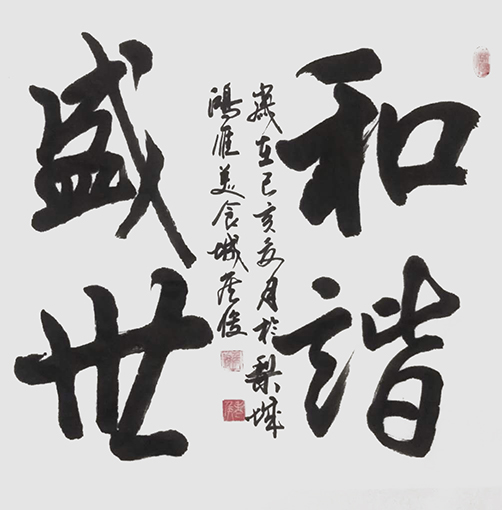 和諧
盛世
歲在己亥夏月於梨城
鴻雁美食城俊